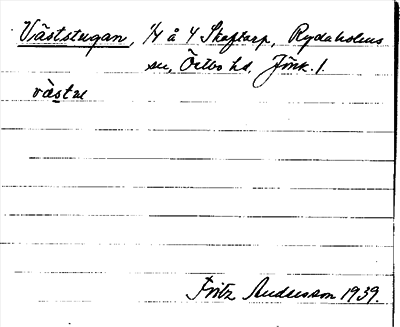 Väststugan, 1/4 å 4 Skaftarp, Rydaholms
sn, Östbo hd, Jönk. l.
västre
Fritz Andersson 1939.